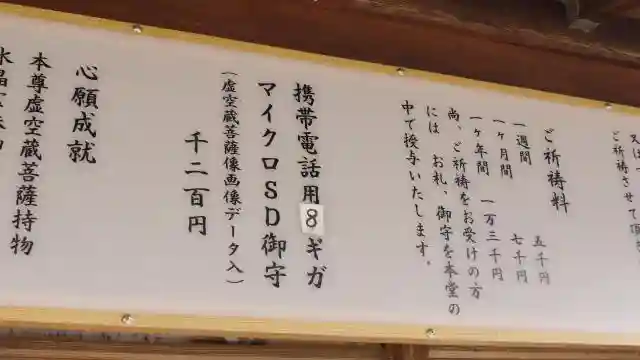 又は
ご祈祷させて頂
ご祈祷料
五千円
一週間　七千円
一ヶ月間　一万三千円
一ヶ年間
尚、ご祈祷をお受けの方
には、お札、御守を本堂の
中で授与いたします。
携帯電話用8ギガ
マイクロSD御守
（虚空蔵菩薩像画像データ入）
千二百円
心願成就
本尊虚空蔵菩薩持物